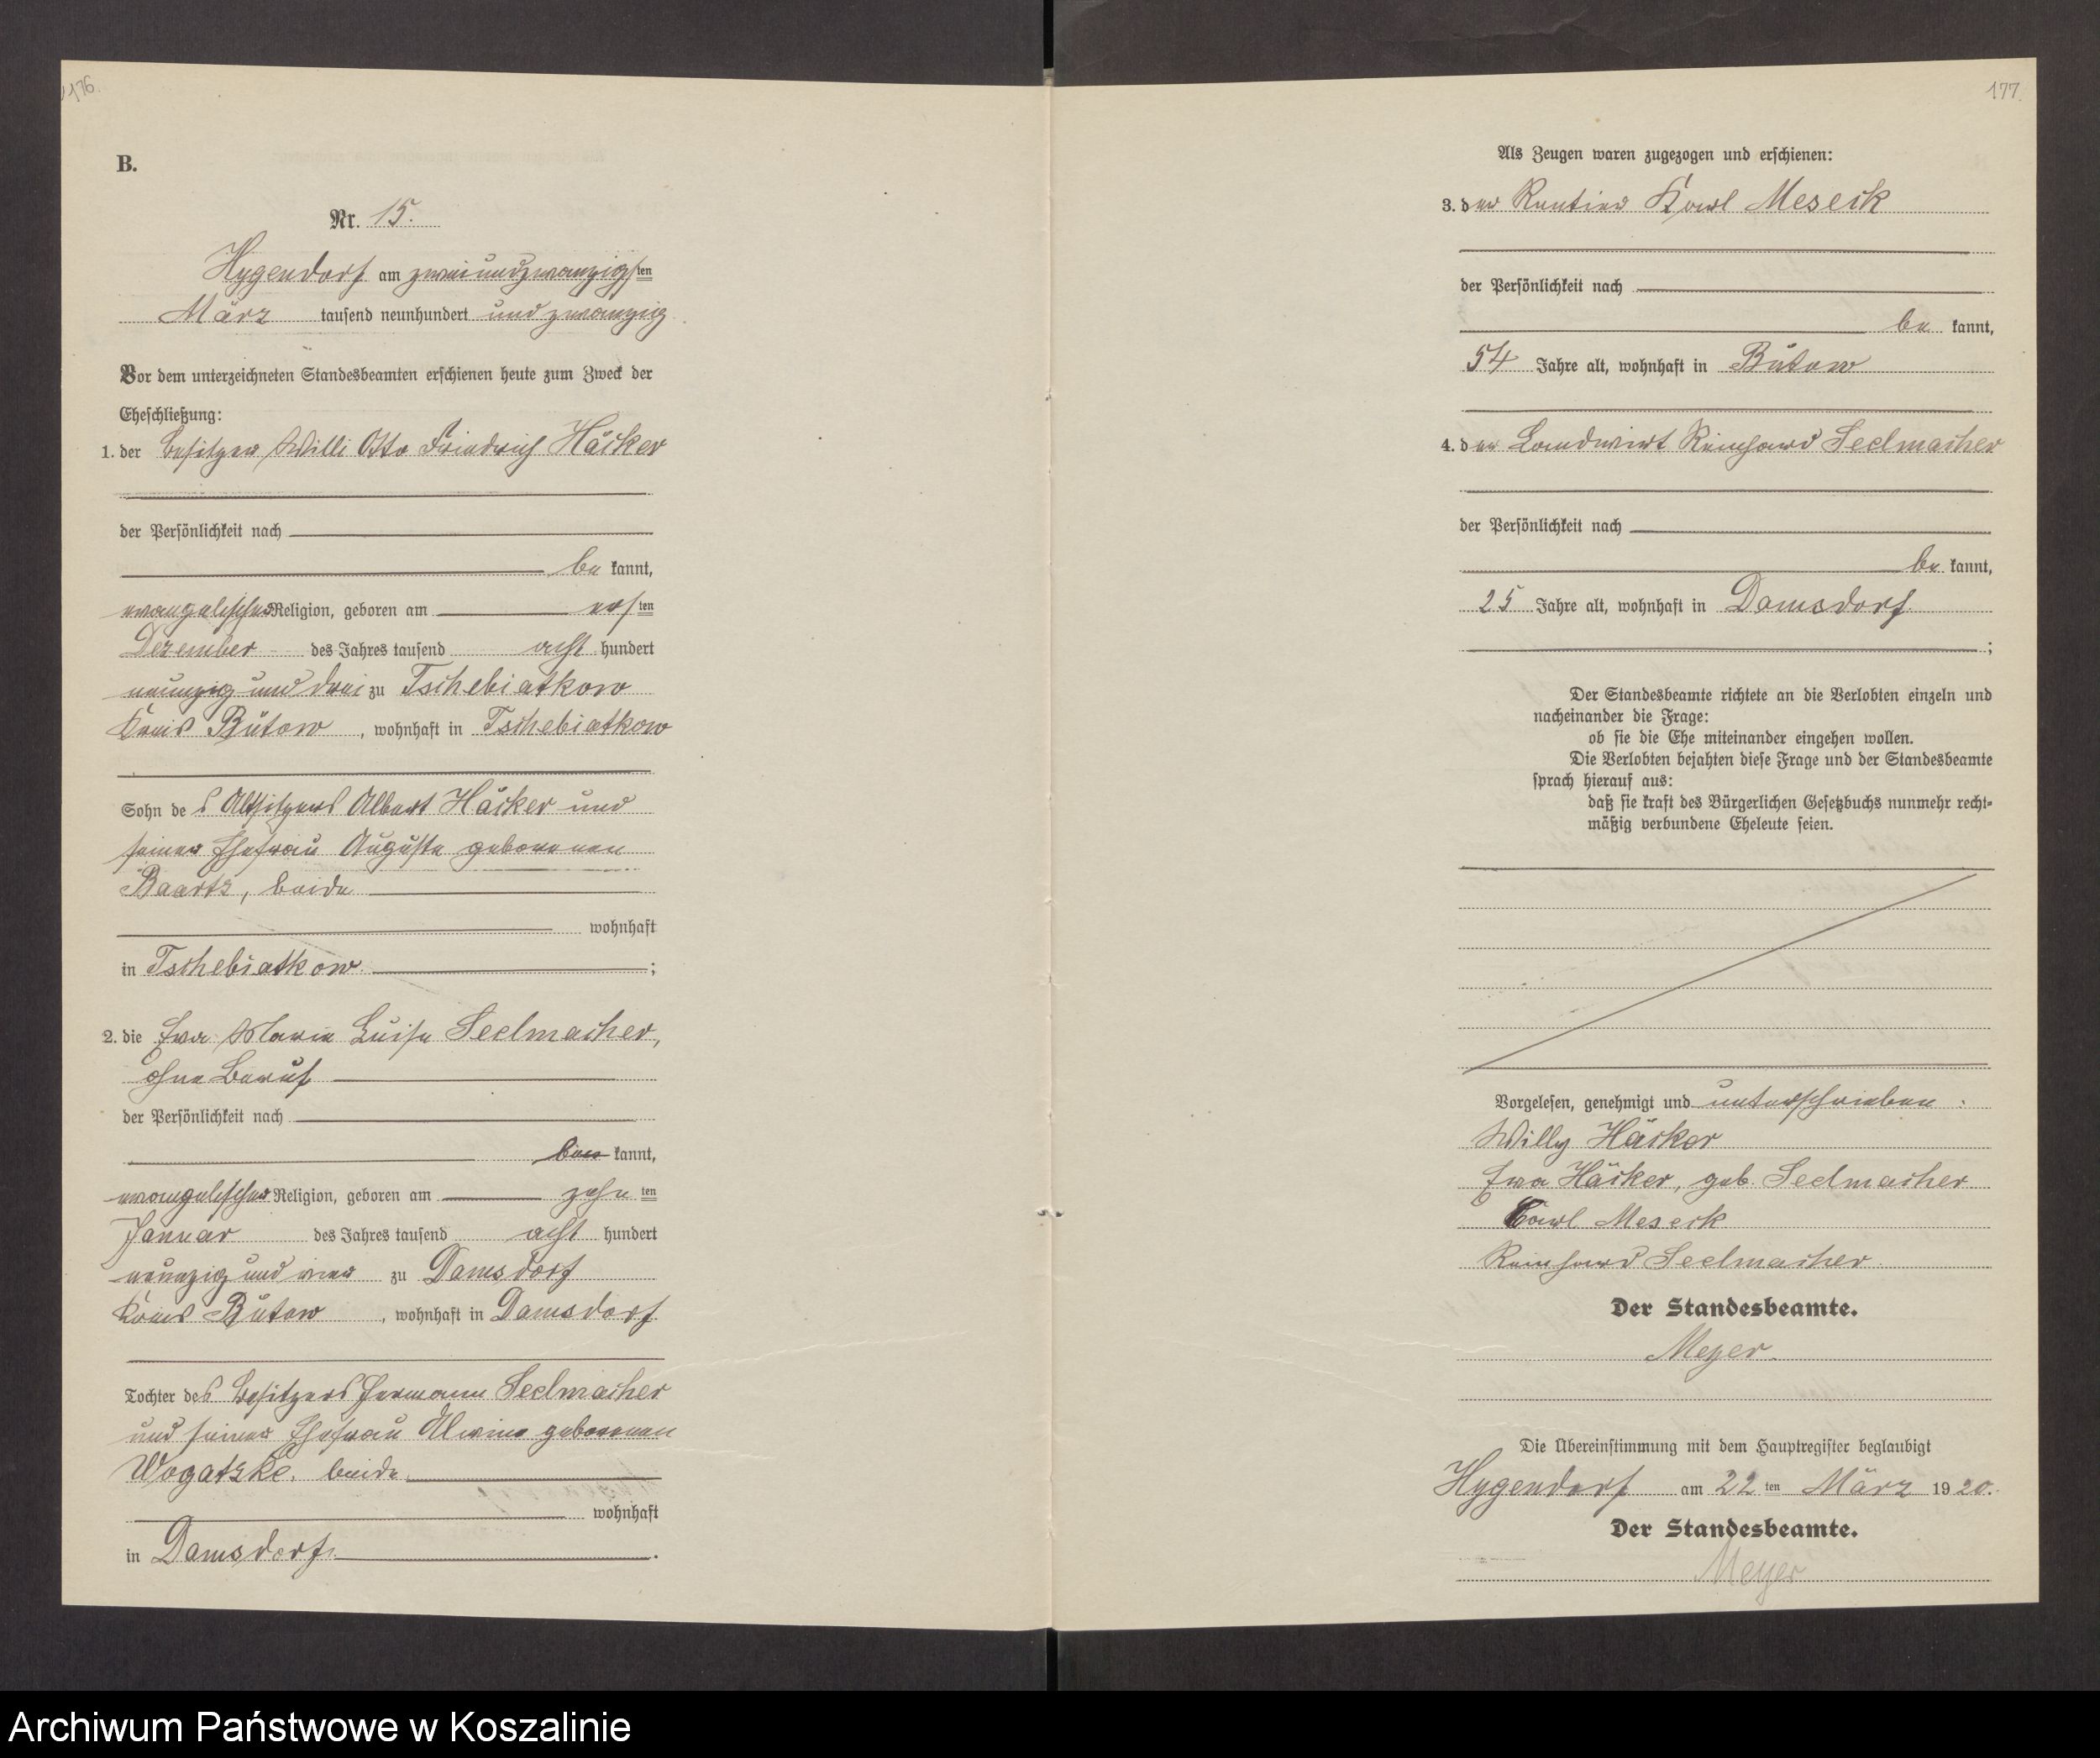 176.
B.
Nr. 15.
Hygendorf am zweiundzwanzigsten
März tausend neunhundert und zwanzig
Vor dem unterzeichneten Standesbeamten erschienen heute zum Zweck der
Eheschließung:
1. der Besitzer Willi Otto Friedrich Häcker
der Persönlichkeit nach
be kannt,
evangelischer Religion, geboren am ersten
Dezember des Jahres tausend acht hundert
neunzig und drei zu Tschebiatkow
Kreis Bütow, wohnhaft in Tschebiatkow
Sohn des Altsitzers Albert Häcker und
seiner Ehefrau Auguste geborenen
Baartz, beide
wohnhaft
in Tschebiatkow.;
2. die Eva Maria Luise Seelmacher,
ohne Beruf
der Persönlichkeit nach
kannt,
evangelischer Religion, geboren am zehn ten
Januar des Jahres tausend acht hundert
neunzig und vier zu Damsdorf
Kreis Bütow, wohnhaft in Damsdorf
Tochter des Besitzers Hermann Seelmacher
und seiner Ehefrau Alwine geborenen
Wogatzke, beide
wohnhaft
in Damsdorf.
177.
Als Zeugen waren zugezogen und erschienen:
3. der Rentier Karl Meseck
der Persönlichkeit nach
be kannt,
54 Jahre alt, wohnhaft in Bütow
4. der Landwirt Reinhard Seelmacher
der Persönlichkeit nach
be kannt,
25 Jahre alt, wohnhaft in Damsdorf
;
Der Standesbeamte richtete an die Verlobten einzeln und
nacheinander die Frage:
ob sie die Ehe miteinander eingehen wollen.
Die Verlobten bejahten diese Frage und der Standesbeamte
sprach hierauf aus:
daß sie kraft des Bürgerlichen Gesetzbuchs nunmehr recht-
mäßig verbundene Eheleute seien.
Vorgelesen, genehmigt und unterschrieben:
Willy Häcker
Eva Häcker, geb. Seelmacher
Karl Meseck
Reinhard Seelmacher.
Der Standesbeamte.
Meyer.
Die Übereinstimmung mit dem Hauptregister beglaubigt
Hygendorf am 22ten März 1920.
Der Standesbeamte.
Meyer
Archiwum Państwowe w Koszalinie